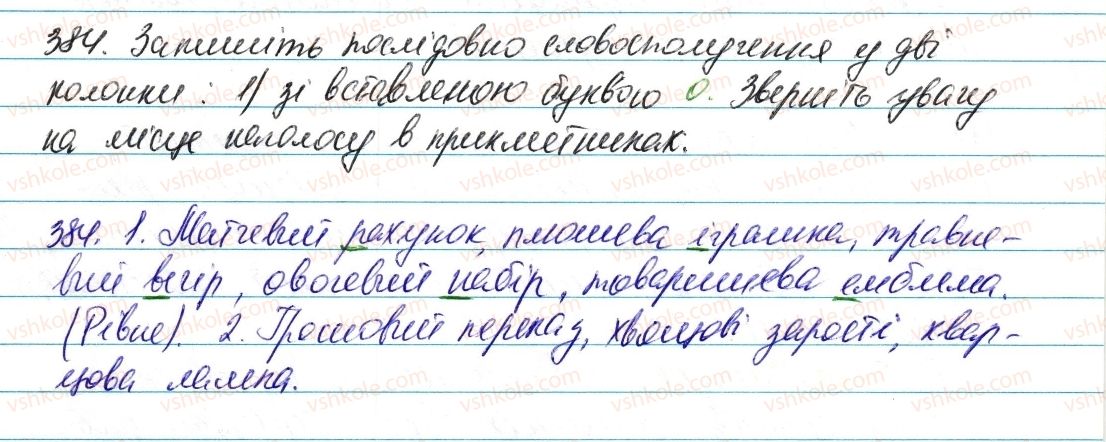 384. Запишіть послідовно словосполучення у дві
колонки: 1) зі вставленою буквою о. Зверніть увагу
на місце наголосу в прикметниках.
384. 1. Матчевий рахунок, плюшева іграшка, травне-
вий вечір, овочевий набір, товаришева емблема.
(Рівне). 2. Грошовий переказ, хвощові зарості, квар-
цова лампа.